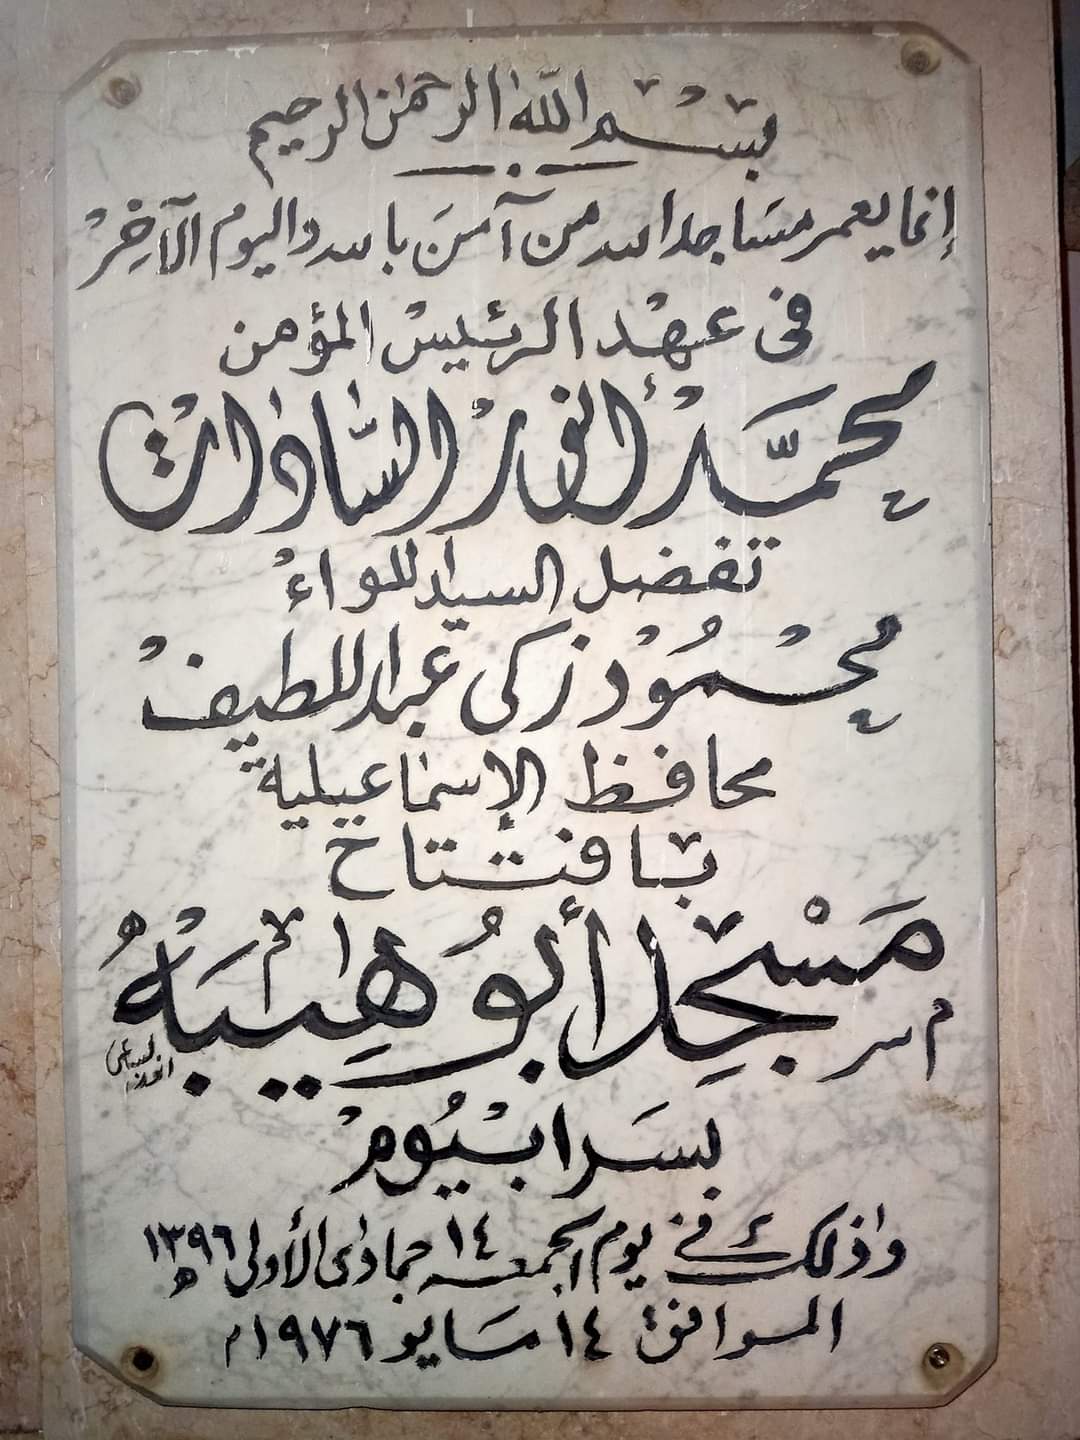 بسم الله الرحمن الرحيم
إنما يعمر مساجد الله من آمن بالله واليوم الآخر
فى عهد الرئيس المؤمن
محمد أنور السادات
تفضل السيد اللواء
محمود زكى عبد اللطيف
محافظ الإسماعيلية
بافتتاح
مسجد أبو هيبه
بسرابيوم
وذلك في يوم الجمعه ١٤ جمادى الأولى ١٣٩٦ه
الموافق ١٤ مايو ١٩٧٦م